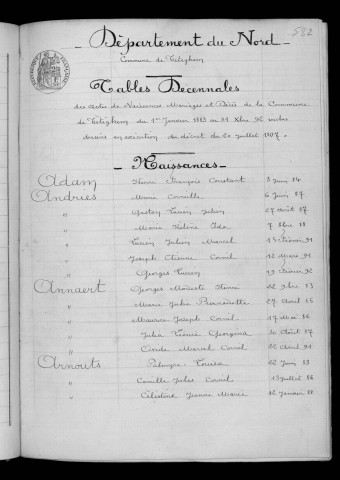 582
Département du Nord
Commune de Téteghem
Tables Décennales
des actes de Naissances Mariages et Décès de la Commune
de Téteghem du 1er Janvier 1883 au 31 Xbre 92 inclus
dressées en exécution du décret du 20 juillet 1807.
Naissances
Adam Henri François Constant 3 Juin 84
Andries Marie Cornélie 6 Juin 87
" Gaston Lucien Julien 27 Août 87
" Marie Hélène Ida 7 8bre 88
" Lucien Julien Marcel 13 février 91
" Joseph Etienne Cornil 12 Mars 91
" Georges Lucien 19 février 92
Annaert Georges Modeste Henri 22 9bre 83
" Marie Julia 27 Avril 85
" Maurice Joseph Cornil 17 Mai 86
" Julia Léonie Georgina 30 Août 87
" Marcel Cornil 22 Août 91
Arnouts Palmyre Louisa 22 Juin 83
" Camille Jules Cornil 13 juillet 86
" Célestine Jeanne Marie 12 Janvier 88